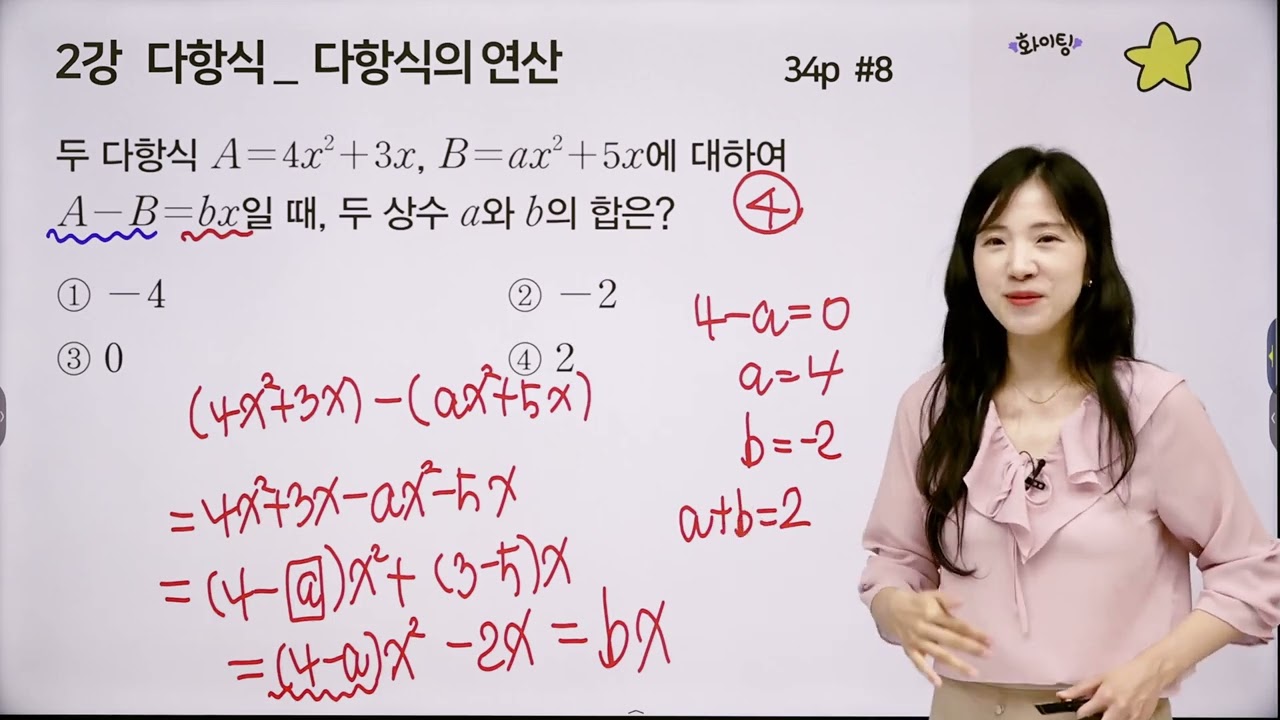 2강 다항식 _ 다항식의 연산
34p #8
화이팅
두 다항식 A=4x²+3x, B=ax²+5x에 대하여
A-B=bx일 때, 두 상수 a와 b의 합은?
④
① -4
② -2
③ 0
④ 2
(4x²+3x)-(ax²+5x)
=4x²+3x-ax²-5x
=(4-a)x²+(3-5)x
=(4-a)x²-2x=bx
4-a=0
a=4
b=-2
a+b=2